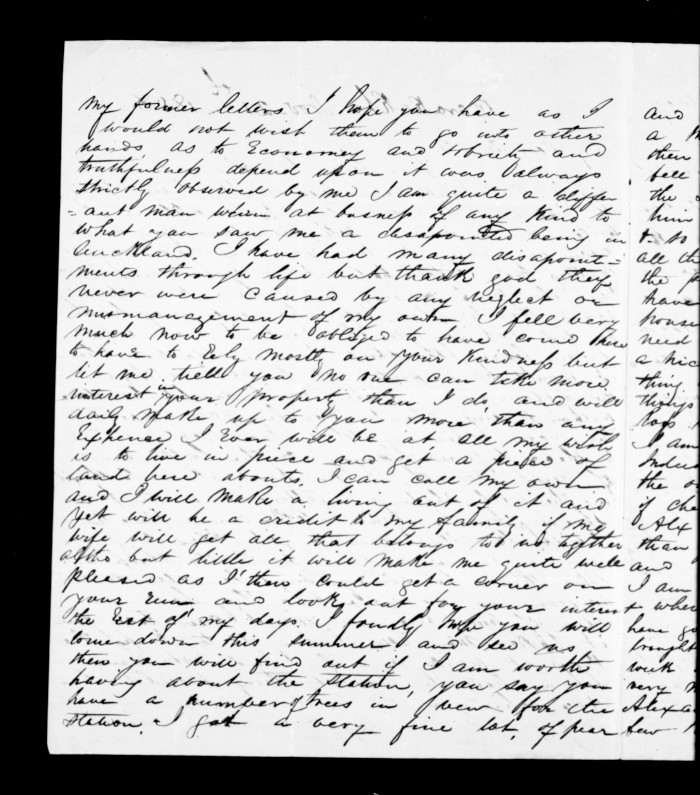 my former letters I hope you have as I
would not wish them to go into other
hands, as to Economey and sobriety and
truthfulness depend upon it was always
strictly observed by me I am quite a differ
=ant man when at busness of any kind to
what you saw me a disapointed being in
Auckland. I have had many disapoint=
ments through life but thank god they
never were caused by any neglect or
mismanagement of my own I fell very
much now to be obleged to have come here
to have to Rely mostly on your kindness but
let me tell you no one can take more
interest in your property than I do, and will
daily make up to you more than any
Expence I Ever will be at all my wish
is to live in piece and get a piece of
land here abouts. I can call my own
and I will make a living out of it and
yet will be a credit to my family if my
wife will get all that belongs to us together
altho but little it will make me quite well
pleased as I then could get a corner on
your Run and look out for your interest
the Rest of my days. I fondly hope you will
come down this summer and see us
then you will find out if I am worth
having about the station, you say you
have a number of trees in view for the
station. I got a very fine lot, of pear
and
a
then
fell
the
him
& so
all th
the
have
house
need
a nic
thing
things

I am
Indu
the o
if che
Alex
than
and
I am
when
have go
brought
week
very
Alexa
few